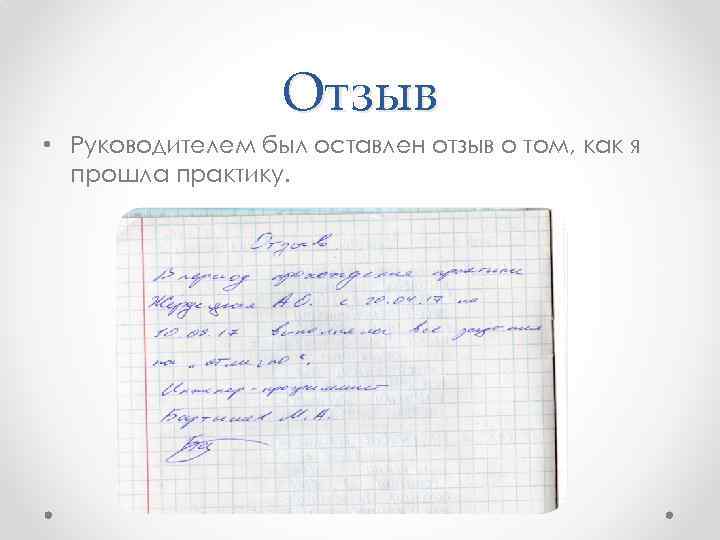 Отзыв
• Руководителем был оставлен отзыв о том, как я
прошла практику.
Отзыв
В период прохождения практики
А.О. с 20.04.17 по
17 выполняла все задания
на "отлично".
Инженер-программист
М.А.